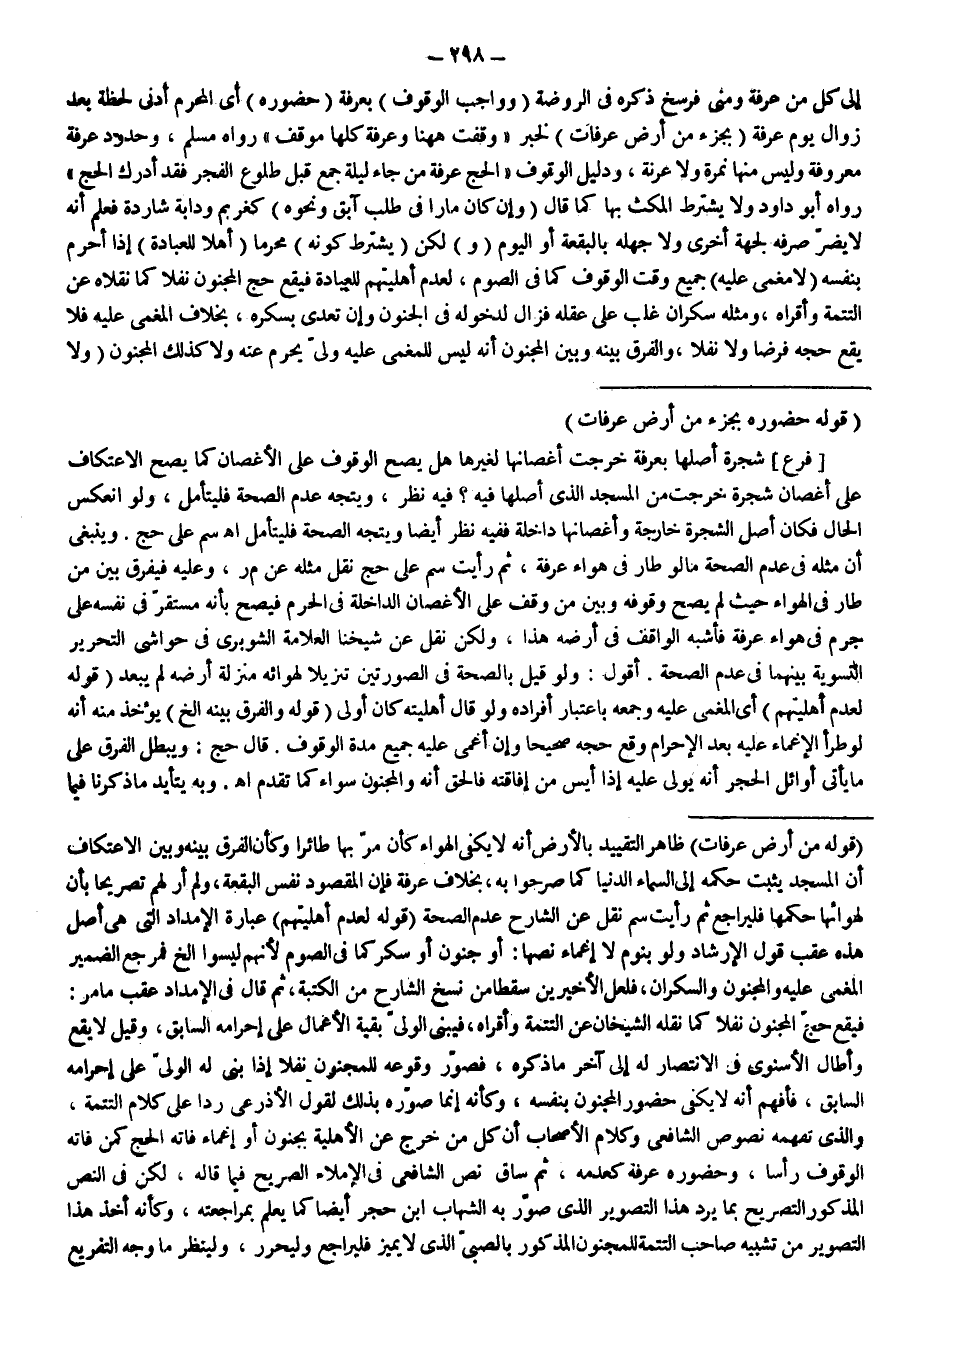 – ٢٩٨ –
إلى كل من عرفة ومنى فرسخ ذكره فى الروضة ( وواجب الوقوف ) بعرفة ( حضوره ) أى المحرم أدنى لحظة بعد
زوال يوم عرفة ( بجزء من أرض عرفات ) لخبر « وقفت ههنا وعرفة كلها موقف » رواه مسلم ، وحدود عرفة
معروفة وليس منها نمرة ولا عرنة ، ودليل الوقوف « الحج عرفة من جاء ليلة جمع قبل طلوع الفجر فقد أدرك الحج »
رواه أبو داود ولا يشترط المكث بها كما قال ( وإن كان مارا فى طلب آبق ونحوه ) كغريم ودابة شاردة فعلم أنه
لايضرّ صرفه لجهة أخرى ولا جهله بالبقعة أو اليوم ( و ) لكن ( يشترط كونه ) محرما ( أهلا للعبادة ) إذا أحرم
بنفسه ( لامغمى عليه) جميع وقت الوقوف كما فى الصوم ، لعدم أهليتهم للعبادة فيقع حج المجنون نفلا كما نقلاه عن
التتمة وأقراه ،ومثله سكران غلب على عقله فزال لدخوله فى الجنون وإن تعدى بسكره ، بخلاف المغمى عليه فلا
يقع حجه فرضا ولا نفلا ،والفرق بينه وبين المجنون أنه ليس للمغمى عليه ولىّ يحرم عنه ولا كذلك المجنون ( ولا
( قوله حضوره بجزء من أرض عرفات )
[ فرع ] شجرة أصلها بعرفة خرجت أغصانها لغيرها هل يصح الوقوف على الأغصان كما يصح الاعتكاف
على أغصان شجرة خرجت من المسجد الذى أصلها فيه ؟ فيه نظر ، ويتجه عدم الصحة فليتأمل ، ولو انعكس
الحال فكان أصل الشجرة خارجة وأغصانها داخلة ففيه نظر أيضا ويتجه الصحة فليتأمل اه سم على حج . وينبغى
أن مثله فى عدم الصحة مالو طار فى هواء عرفة ، ثم رأيت سم على حج نقل مثله عن مر ، وعليه فيفرق بين من
طار فى الهواء حيث لم يصح وقوفه وبين من وقف على الأغصان الداخلة فى الحرم فيصح بأنه مستقرّ فى نفسه على
جرم فى هواء عرفة فأشبه الواقف فى أرضه هذا ، ولكن نقل عن شيخنا العلامة الشوبرى فى حواشى التحرير
التسوية بينهما فى عدم الصحة . أقول : ولو قيل بالصحة فى الصورتين تنزيلا لهوائه منزلة أرضه لم يبعد ( قوله
لعدم أهليتهم ) أى المغمى عليه وجمعه باعتبار أفراده ولو قال أهليته كان أولى ( قوله والفرق بينه الخ ) يؤخذ منه أنه
لو طرأ الإغماء عليه بعد الإحرام وقع حجه صحيحا وإن أغمى عليه جميع مدة الوقوف . قال حج : ويبطل الفرق على
مايأتى أوائل الحجر أنه يولى عليه إذا أيس من إفاقته فالحق أنه والمجنون سواء كما تقدم اه . وبه يتأيد ماذكرنا فيما
(قوله من أرض عرفات) ظاهر التقييد بالأرض أنه لايكفى الهواء كأن مرّ بها طائرا وكأن الفرق بينه وبين الاعتكاف
أن المسجد يثبت حكمه إلى السماء الدنيا كما صرحوا به ، بخلاف عرفة فإن المقصود نفس البقعة ، ولم أر لهم تصريحا بأن
لهوائها حكمها فليراجع ثم رأيت سم نقل عن الشارح عدم الصحة (قوله لعدم أهليتهم) عبارة الإمداد التى هى أصل
هذه عقب قول الإرشاد ولو بنوم لا إغماء نصها : أو جنون أو سكر كما فى الصوم لأنهم ليسوا الخ فمرجع الضمير
المغمى عليه والمجنون والسكران ، فلعل الأخيرين سقطا من نسخ الشارح من الكتبة ، ثم قال فى الإمداد عقب مامر :
فيقع حجّ المجنون نفلا كما نقله الشيخان عن التتمة وأقراه ، فيبنى الولىّ بقية الأعمال على إحرامه السابق ، وقيل لايقع
وأطال الأسنوى فى الانتصار له إلى آخر ماذكره ، فصوّر وقوعه للمجنون نفلا إذا بنى له الولىّ على إحرامه
السابق ، فأفهم أنه لايكفى حضور المجنون بنفسه ، وكأنه إنما صوّره بذلك لقول الأذرعى ردا على كلام التتمة ،
والذى تفهمه نصوص الشافعى وكلام الأصحاب أن كل من خرج عن الأهلية بجنون أو إغماء فاته الحج كمن فاته
الوقوف رأسا ، وحضوره عرفة كعدمه ، ثم ساق نص الشافعى فى الإملاء الصريح فيما قاله ، لكن فى النص
المذكور التصريح بما يرد هذا التصوير الذى صوّر به الشهاب ابن حجر أيضا كما يعلم بمراجعته ، وكأنه أخذ هذا
التصوير من تشبيه صاحب التتمة للمجنون المذكور بالصبىّ الذى لايميز فليراجع وليحرر ، ولينظر ما وجه التفريع